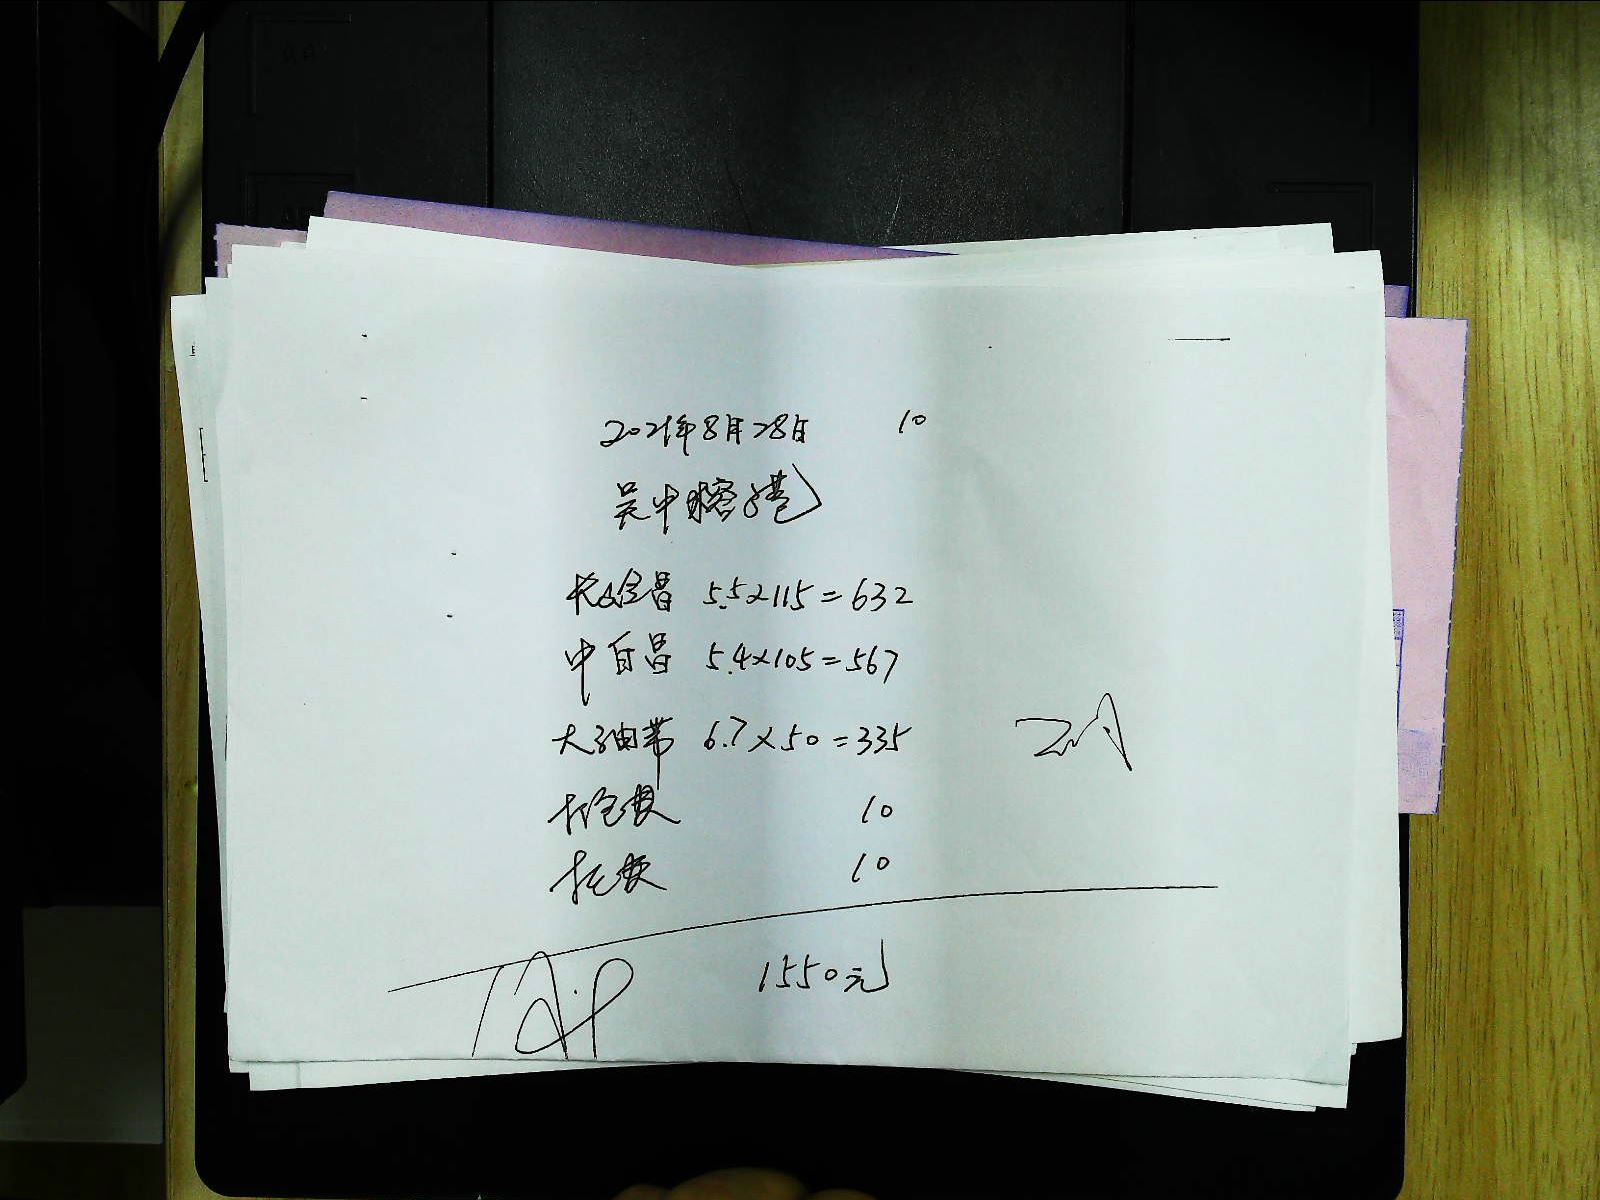 2021年8月28日 10
吴中
5.5×115=632
中白昌 5.4×105=567
大油带 6.7×50=335
打包费 10
托费 10
1550元